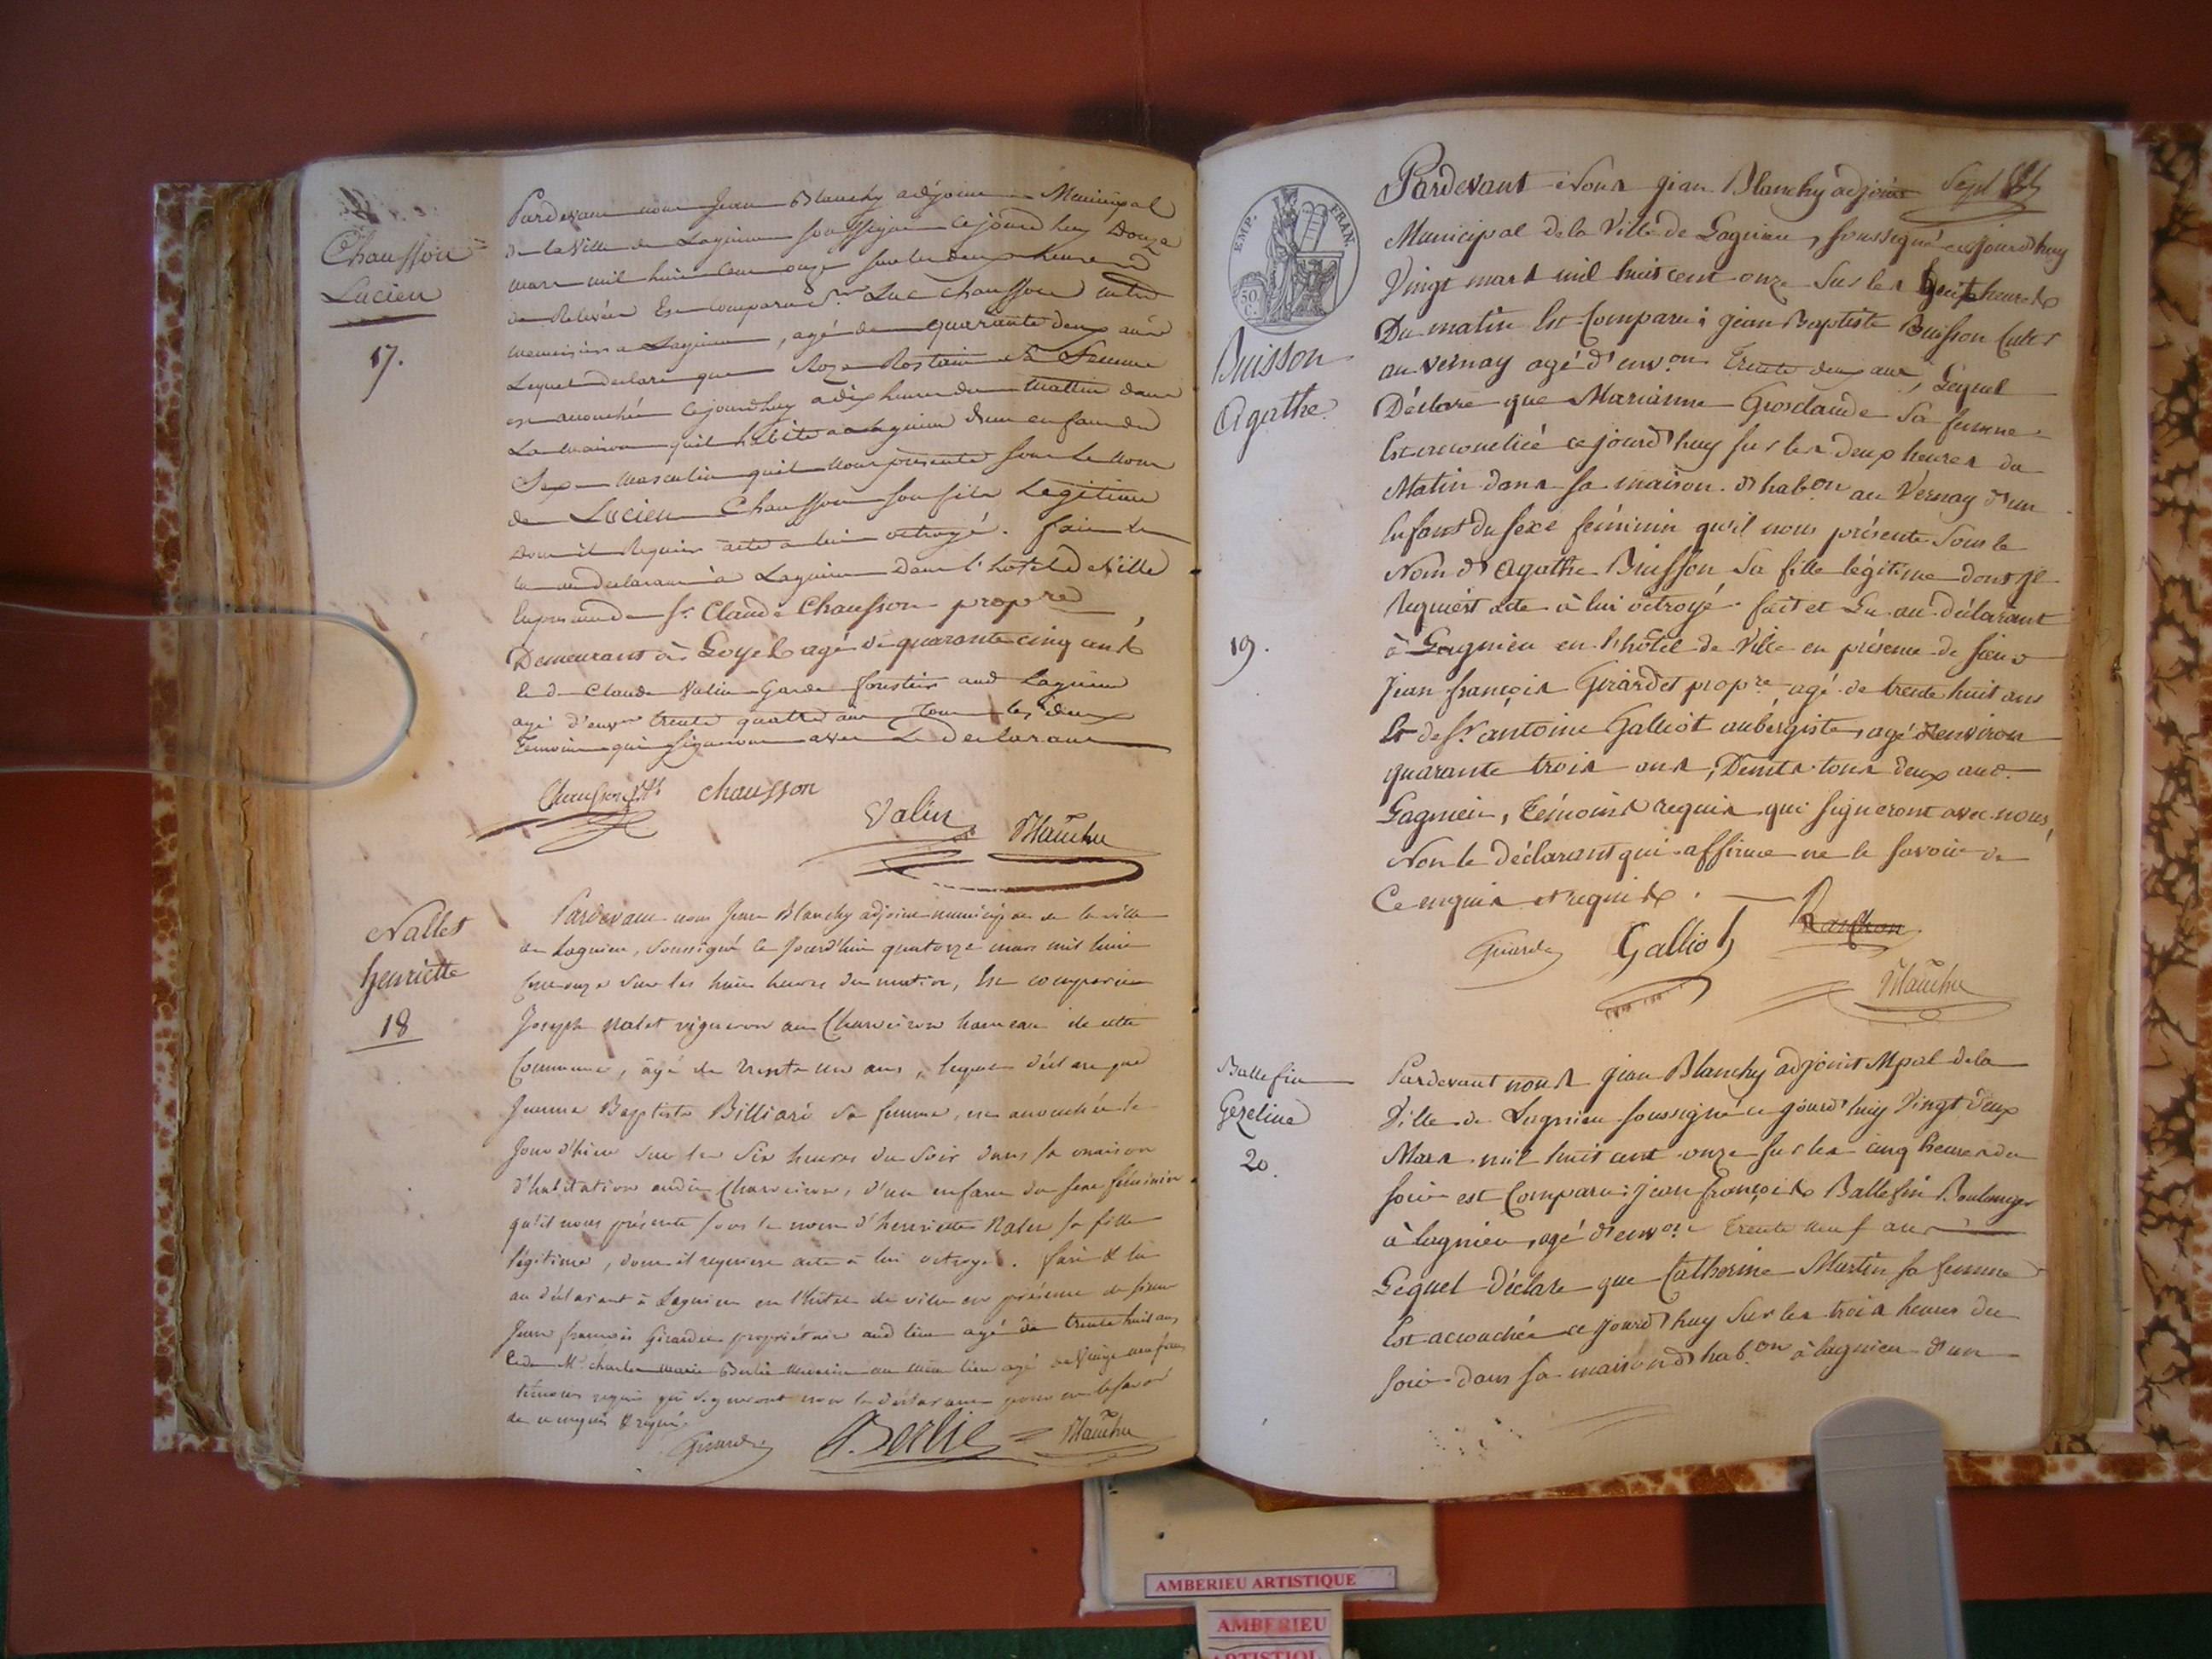 Chausson
Lucien
17.
Pardevant nous Jean Blanchy adjoint Municipal
de la Ville de Lagnieu soussigné ce jourdhuy Douze
mars mil huit cent onze sur les deux heures
de Relevée Est comparu Sr Luc Chausson
menuisier a Lagnieu, agé de quarante deux ans
Lequel declare que Roze Rostain sa femme
est accouchée cejourdhuy a dix heures du mattin dans
La maison quil habite a Lagnieu dun enfant du
Sexe masculin quil nous présente sous le nom
de Lucien Chausson son fils Légitime
Dont il Requier acte a lui octroyé. fait et
lu au declarant à Lagnieu Dans l'hotel de Ville
En presence de Sr Claude Chausson propre
Demeurant à Loyes agé de quarante cinq ans
Et de Claude Valin Garde forestier aud Lagnieu
agé d'environ trente quattre ans Tous les deux
Temoins qui signeront avec Le Declarant
Chausson chausson
Valin Blanchy
Nallet
henriette
18
Pardevant nous Jean Blanchy adjoint municipal de la ville
de Lagnieu, soussigné ce Jourd'hui quatorze mars mil huit
Cent onze sur les huit heures du matin, Est comparu
Joseph Nalet vigneron au Charveiron hameau de cette
Commune, âgé de trente un ans, lequel déclare que
Jeanne Baptiste Billiard sa femme, est accouchée le
Jour d'hier sur les Six heures du Soir dans sa maison
d'habitation audit Charveiron, d'un enfant du sexe féminin
qu'il nous présente sous le nom d'henriette Nalet sa fille
légitime, dont il requiert acte à lui octroyé. fait & lu
au déclarant à Lagnieu en l'hôtel de ville en présence de sieur
Jean françois Girardet propriétaire aud lieu agé de trente huit ans
Et de Mr charles marie Berlie au même lieu agé de Vingt neuf ans
témoins requis qui signeront non le déclarant pour ne le savoir
de ce enquis & requis
Girardet Berlie Blanchy
EMP. FRAN.
50 C.
Buisson
Agathe
19.
Pardevant Nous jean Blanchy adjoint Sept
Municipal de la Ville de Lagnieu, soussigné ce jourd'huy
Vingt mars mil huit cent onze Sur les heures
Du matin Est Comparu: jean Baptiste Buisson Cultr
au Vernay agé d'envon Trente deux ans, Lequel
Déclare que Marianne Grosclaude Sa femme
Est accouchée ce jourd'huy sur les deux heures du
Matin dans sa maison d'habon au Vernay d'un
Enfant du sexe féminin qu'il nous présente Sous le
Nom d'Agathe Buisson Sa fille légitime dont il
Requiert acte à lui octroyé. fait et Lu au déclarant
à Lagnieu en l'hôtel de Ville en présence de sieur
Jean françois Girardet propre agé de trente huit ans
Et de Sr antoine Galliot aubergiste, agé d'environ
quarante trois ans, Demts tous deux aud.
Lagnieu, Témoins requis qui signeront avec nous,
Non le déclarant qui affirme ne le savoir de
Ce enquis et requis.
Girardet Galliot
Blanchy
Ballefin
Gezeline
20.
Pardevant nous jean Blanchy adjoint Mpal de la
Ville de Lagnieu soussigné ce jourd'huy Vingt deux
Mars mil huit cent onze Sur les cinq heures du
soir est Comparu: jean françois Ballefin Boulanger
à lagnieu, agé d'envon Trente neuf ans
Lequel Déclare que Catherine Martin sa femme
Est accouchée ce jourd'huy Sur les trois heures du
soir dans sa maison d'habon à lagnieu d'un
AMBERIEU ARTISTIQUE
AMBERIEU
ARTISTIQUE